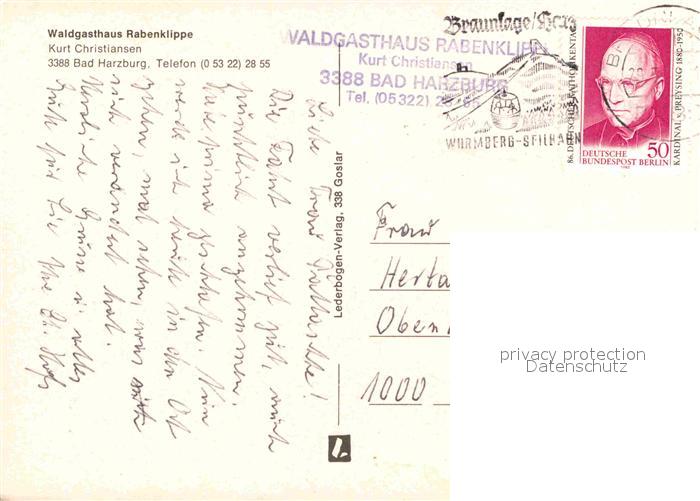 Waldgasthaus Rabenklippe
Kurt Christiansen
3388 Bad Harzburg, Telefon (0 53 22) 28 55
WALDGASTHAUS RABENKLIPPE
Kurt Christiansen
3388 BAD HARZBURG
Tel. (05322) 28 55
Braunlage/Harz
WURMBERG-SEILBAHN
86. DEUTSCHER KATHOLIKENTAG
KARDINAL v. PREYSING 1880-1950
DEUTSCHE
BUNDESPOST BERLIN
50
Liebe Frau
Die Fahrt verlief gut, auch
pünktlich angekommen.
prima geschlafen. Nun
werde ich heute in den Ort
gehen mal sehen was
sich verändert hat.
Herzliche Grüsse u. alles
Gute für Sie Ihr
Lederbogen-Verlag, 338 Goslar
Frau
Herta
Oben
1000
privacy protection
Datenschutz